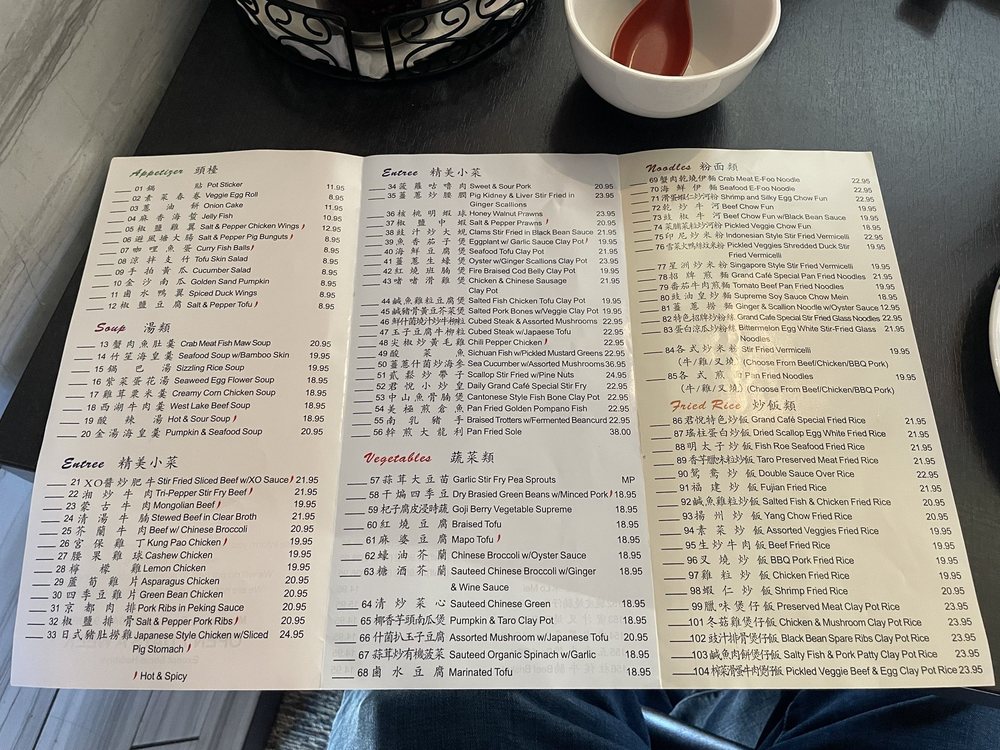 Appetizer 頭檯
01 鍋 點 Pot Sticker 11.95
02 素 菜 春 卷 Veggie Egg Roll 8.95
03 蔥 油 餅 Onion Cake 11.95
04 麻 香 海 蜇 Jelly Fish 10.95
05 椒 鹽 雞 翼 Salt & Pepper Chicken Wings 12.95
06 避 風 塘 大 腸 Salt & Pepper Pig Bunguts 8.95
07 咖 哩 魚 蛋 Curry Fish Balls 8.95
08 涼 拌 支 竹 Tofu Skin Salad 8.95
09 手 拍 黃 瓜 Cucumber Salad 8.95
10 金 沙 南 瓜 Golden Sand Pumpkin 8.95
11 鹵 水 鴨 翼 Spiced Duck Wings 8.95
12 椒 鹽 豆 腐 Salt & Pepper Tofu 8.95
Soup 湯類
13 蟹 肉 魚 肚 羹 Crab Meat Fish Maw Soup 20.95
14 竹 笙 海 皇 羹 Seafood Soup w/Bamboo Skin 19.95
15 鍋 巴 湯 Sizzling Rice Soup 19.95
16 紫 菜 蛋 花 湯 Seaweed Egg Flower Soup 18.95
17 雞 茸 粟 米 羹 Creamy Corn Chicken Soup 18.95
18 西 湖 牛 肉 羹 West Lake Beef Soup 18.95
19 酸 辣 湯 Hot & Sour Soup 18.95
20 金 湯 海 皇 羹 Pumpkin & Seafood Soup 20.95
Entree 精美小菜
21 XO醬 炒 肥 牛 Stir Fried Sliced Beef w/XO Sauce 21.95
22 湘 炒 牛 肉 Tri-Pepper Stir Fry Beef 21.95
23 蒙 古 牛 肉 Mongolian Beef 19.95
24 清 湯 牛 腩 Stewed Beef in Clear Broth 21.95
25 芥 蘭 牛 肉 Beef w/Chinese Broccoli 20.95
26 宮 保 雞 丁 Kung Pao Chicken 19.95
27 腰 果 雞 球 Cashew Chicken 19.95
28 檸 檬 雞 Lemon Chicken 19.95
29 蘆 筍 雞 片 Asparagus Chicken 20.95
30 四 季 豆 雞 片 Green Bean Chicken 20.95
31 京 都 肉 排 Pork Ribs in Peking Sauce 20.95
32 椒 鹽 排 骨 Salt & Pepper Pork Ribs 20.95
33 日式豬肚撈雞 Japanese Style Chicken w/Sliced 24.95
Pig Stomach
Hot & Spicy
Entree 精美小菜
34 菠 蘿 咕 嚕 肉 Sweet & Sour Pork 20.95
35 薑 蔥 炒 腰 膶 Pig Kidney & Liver Stir Fried in 22.95
Ginger Scallions
36 核 桃 明 蝦 球 Honey Walnut Prawns 23.95
37 椒 鹽 中 蝦 Salt & Pepper Prawns 20.95
38 豉 汁 炒 大 蜆 Clams Stir Fried in Black Bean Sauce 21.95
39 魚 香 茄 子 煲 Eggplant w/ Garlic Sauce Clay Pot 19.95
40 海 鮮 豆 腐 煲 Seafood Tofu Clay Pot 21.95
41 薑 蔥 生 蠔 煲 Oyster w/Ginger Scallions Clay Pot 23.95
42 紅 燒 班 腩 煲 Fire Braised Cod Belly Clay Pot 19.95
43 啫 啫 滑 雞 煲 Chicken & Chinese Sausage 21.95
Clay Pot
44 鹹魚雞粒豆腐煲 Salted Fish Chicken Tofu Clay Pot 19.95
45 鹹豬骨黃豆芥菜煲 Salted Pork Bones w/Veggie Clay Pot 19.95
46 Cubed Steak & Assorted Mushrooms 22.95
47 玉子豆腐牛柳粒 Cubed Steak w/Japaese Tofu 22.95
48 尖 椒 炒 黃 毛 雞 Chili Pepper Chicken 22.95
49 酸 菜 魚 Sichuan Fish w/Pickled Mustard Greens 22.95
50 薑蔥什菌炒海參 Sea Cucumber w/Assorted Mushrooms 36.95
51 貳 鬆 炒 帶 子 Scallop Stir Fried w/Pine Nuts 24.95
52 君 悅 小 炒 皇 Daily Grand Café Special Stir Fry 22.95
53 中 山 魚 骨 腩 煲 Cantonese Style Fish Bone Clay Pot 22.95
54 美 極 煎 倉 魚 Pan Fried Golden Pompano Fish 22.95
55 南 乳 豬 手 Braised Trotters w/Fermented Beancurd 22.95
56 幹 煎 大 龍 利 Pan Fried Sole 38.00
Vegetables 蔬菜類
57 蒜 茸 大 豆 苗 Garlic Stir Fry Pea Sprouts MP
58 干 煸 四 季 豆 Dry Brasied Green Beans w/Minced Pork 18.95
59 杞子腐皮浸時蔬 Goji Berry Vegetable Supreme 18.95
60 紅 燒 豆 腐 Braised Tofu 18.95
61 麻 婆 豆 腐 Mapo Tofu 18.95
62 蠔 油 芥 蘭 Chinese Broccoli w/Oyster Sauce 18.95
63 糖 酒 芥 蘭 Sauteed Chinese Broccoli w/Ginger 18.95
& Wine Sauce
64 清 炒 菜 心 Sauteed Chinese Green 18.95
65 椰香芋頭南瓜煲 Pumpkin & Taro Clay Pot 18.95
66 什菌扒玉子豆腐 Assorted Mushroom w/Japanese Tofu 20.95
67 蒜茸炒有機菠菜 Sauteed Organic Spinach w/Garlic 18.95
68 鹵 水 豆 腐 Marinated Tofu 18.95
Noodles 粉面類
69 蟹肉乾燒伊麵 Crab Meat E-Foo Noodle 22.95
70 海 鮮 伊 麵 Seafood E-Foo Noodle 22.95
71 滑蛋蝦仁炒河粉 Shrimp and Silky Egg Chow Fun 22.95
72 乾 炒 牛 河 Beef Chow Fun 19.95
73 豉 椒 牛 河 Beef Chow Fun w/Black Bean Sauce 19.95
74 菜脯菜粒炒河粉 Pickled Veggie Chow Fun 18.95
75 印 尼 炒 米 粉 Indonesian Style Stir Fried Vermicelli 22.95
76 雪菜火鴨絲炆米粉 Pickled Veggies Shredded Duck Stir 19.95
Fried Vermicelli
77 星 洲 炒 米 粉 Singapore Style Stir Fried Vermicelli 19.95
78 招 牌 煎 麵 Grand Café Special Pan Fried Noodles 21.95
79 番茄牛肉煎麵 Tomato Beef Pan Fried Noodles 19.95
80 豉 油 皇 炒 麵 Supreme Soy Sauce Chow Mein 18.95
81 薑 蔥 撈 麵 Ginger & Scallion Noodle w/Oyster Sauce 12.95
82 特色招牌炒粉絲 Grand Cafe Special Stir Fried Glass Noodles 22.95
83 蛋白涼瓜炒粉絲 Bittermelon Egg White Stir-Fried Glass 21.95
Noodles
84 各 式 炒 米 粉 Stir Fried Vermicelli 19.95
(牛/雞/叉燒) (Choose From Beef/Chicken/BBQ Pork)
85 各 式 煎 麵 Pan Fried Noodles 19.95
(牛/雞/叉燒) (Choose From Beef/Chicken/BBQ Pork)
Fried Rice 炒飯類
86 君悅特色炒飯 Grand Café Special Fried Rice 21.95
87 瑤柱蛋白炒飯 Dried Scallop Egg White Fried Rice 21.95
88 明 太 子 炒 飯 Fish Roe Seafood Fried Rice 21.95
89 香芋臘味粒炒飯 Taro Preserved Meat Fried Rice 21.95
90 鴛 鴦 炒 飯 Double Sauce Over Rice 22.95
91 福 建 炒 飯 Fujian Fried Rice 21.95
92 鹹魚雞粒炒飯 Salted Fish & Chicken Fried Rice 20.95
93 揚 州 炒 飯 Yang Chow Fried Rice 20.95
94 素 菜 炒 飯 Assorted Veggies Fried Rice 19.95
95 生 炒 牛 肉 飯 Beef Fried Rice 19.95
96 叉 燒 炒 飯 BBQ Pork Fried Rice 19.95
97 雞 粒 炒 飯 Chicken Fried Rice 19.95
98 蝦 仁 炒 飯 Shrimp Fried Rice 20.95
99 臘 味 煲 仔 飯 Preserved Meat Clay Pot Rice 23.95
101 冬菇雞煲仔飯 Chicken & Mushroom Clay Pot Rice 23.95
102 豉汁排骨煲仔飯 Black Bean Spare Ribs Clay Pot Rice 23.95
103 鹹魚肉餅煲仔飯 Salty Fish & Pork Patty Clay Pot Rice 23.95
104 榨菜滑蛋牛肉煲仔飯 Pickled Veggie Beef & Egg Clay Pot Rice 23.95